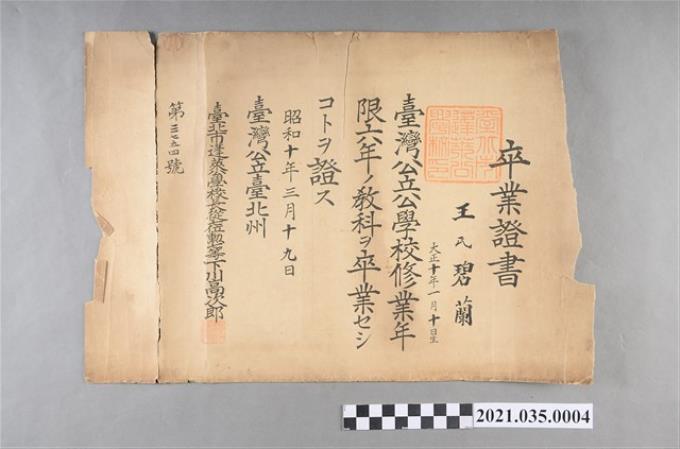 卒業證書
王氏碧蘭
大正十年一月十日生
臺灣公立公學校修業年
限六年ノ教科ヲ卒業セシ
コトヲ證ス
昭和十年三月十九日
臺灣公立臺北州
臺北市蓬萊公學校長從七位勳六等下山高次郎
第三七五四號
2021.035.0004